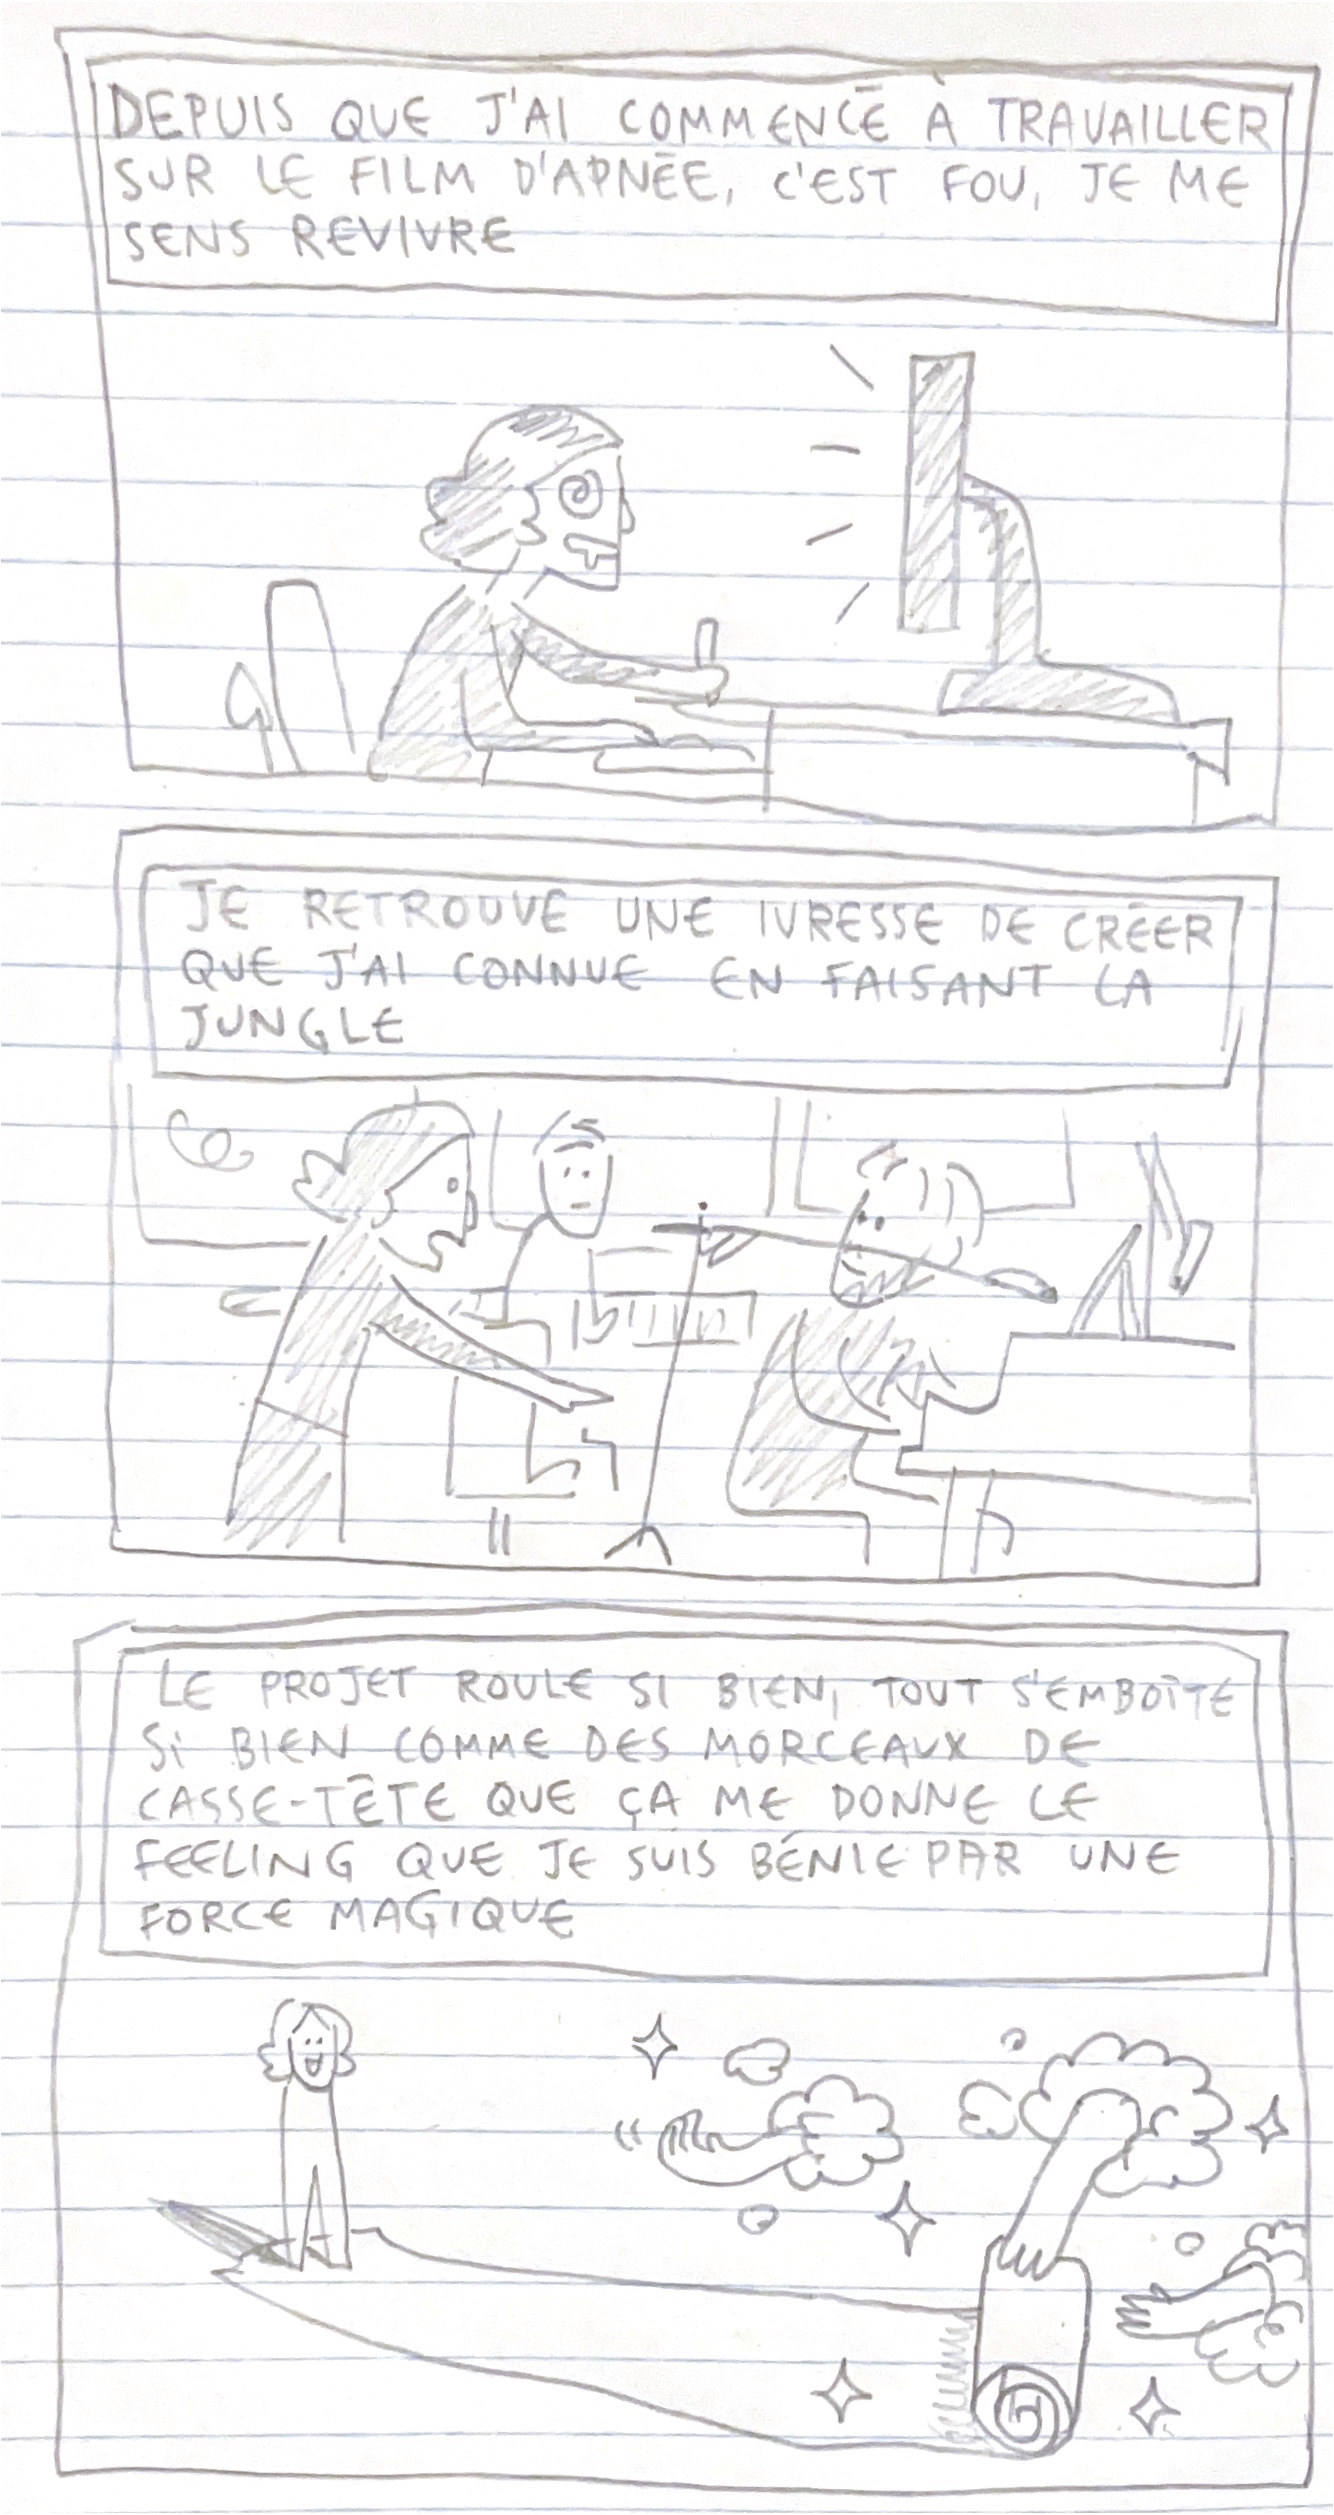 DEPUIS QUE J'AI COMMENCÉ À TRAVAILLER
SUR LE FILM D'APNÉE, C'EST FOU, JE ME
SENS REVIVRE
JE RETROUVE UNE IVRESSE DE CRÉER
QUE J'AI CONNUE EN FAISANT LA
JUNGLE
LE PROJET ROULE SI BIEN, TOUT S'EMBOÎTE
SI BIEN COMME DES MORCEAUX DE
CASSE-TÊTE QUE ÇA ME DONNE LE
FEELING QUE JE SUIS BÉNIE PAR UNE
FORCE MAGIQUE